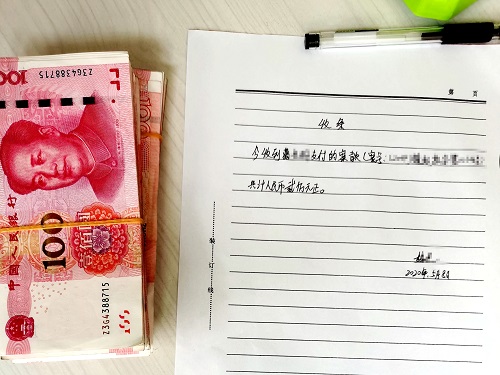 100
Z3G4388715
中国人民银行
100
Z3G4388715
100
第 页
收条
今收到 支付的案款(案号:
共计人民币 元正。
装
订
线
2020年5月8日